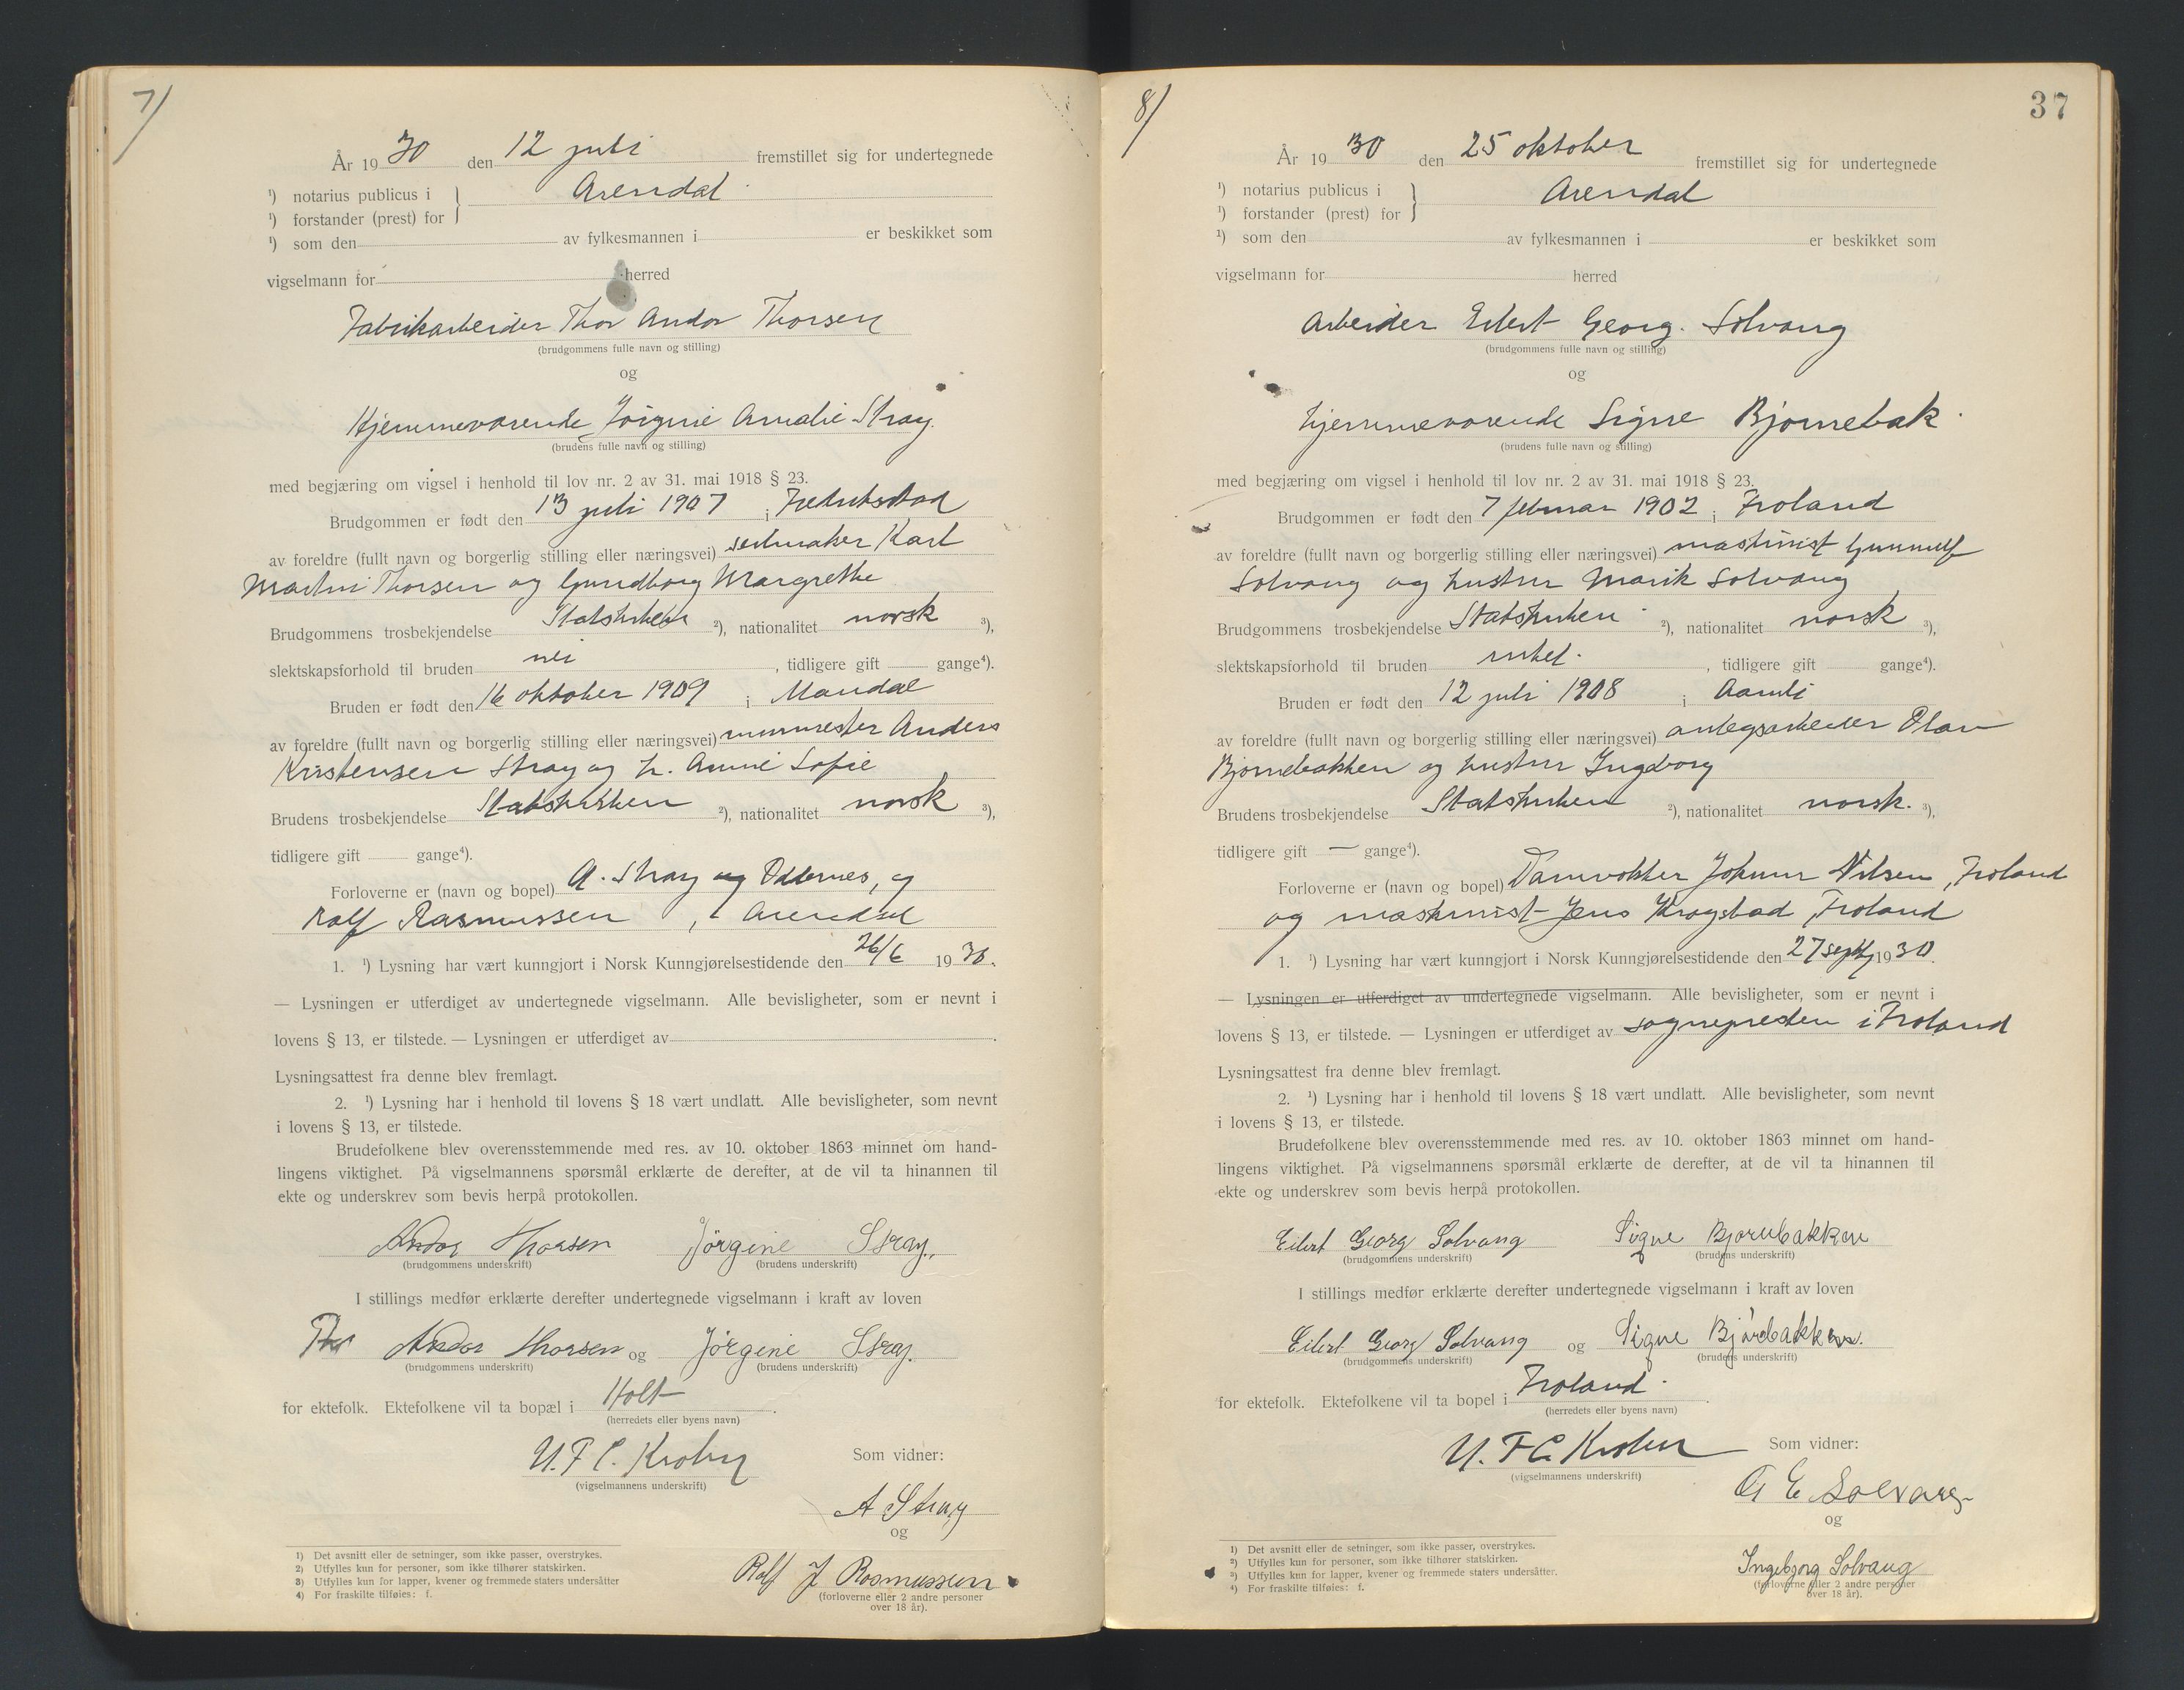 7/
År 1930 den 12 juli fremstillet sig for undertegnede
¹) notarius publicus i } Arendal
¹) forstander (prest) for
¹) som den av fylkesmannen i er beskikket som
vigselmann for herred
Fabrikarbeider Thor Andor Thorsen
(brudgommens fulle navn og stilling)
og
Hjemmeværende Jörgine Amalie Stray.
(brudens fulle navn og stilling)
med begjæring om vigsel i henhold til lov nr. 2 av 31. mai 1918 § 23.
Brudgommen er født den 13 juli 1907 i Fredrikstad
av foreldre (fullt navn og borgerlig stilling eller næringsvei) seilmaker Karl
Martin Thorsen og Gundborg Margrethe
Brudgommens trosbekjendelse Statskirken ²), nationalitet norsk ³),
slektskapsforhold til bruden nei , tidligere gift gange⁴).
Bruden er født den 16 oktober 1909 i Mandal
av foreldre (fullt navn og borgerlig stilling eller næringsvei) murmester Anders
Kristensen Stray og h. Anne Sofie
Brudens trosbekjendelse Statskirken ²), nationalitet norsk ³),
tidligere gift gange⁴).
Forloverne er (navn og bopel) A. Stray og Oddernes, og
Ralf Rasmussen , Arendal
1. ¹) Lysning har vært kunngjort i Norsk Kunngjørelsestidende den 26/6 1930.
— Lysningen er utferdiget av undertegnede vigselmann. Alle bevisligheter, som er nevnt i
lovens § 13, er tilstede. — Lysningen er utferdiget av .
Lysningsattest fra denne blev fremlagt.
2. ¹) Lysning har i henhold til lovens § 18 vært undlatt. Alle bevisligheter, som nevnt
i lovens § 13, er tilstede.
Brudefolkene blev overensstemmende med res. av 10. oktober 1863 minnet om hand-
lingens viktighet. På vigselmannens spørsmål erklærte de derefter, at de vil ta hinannen til
ekte og underskrev som bevis herpå protokollen.
Andor Thorsen Jörgine Stray.
(brudgommens underskrift) (brudens underskrift)
I stillings medfør erklærte derefter undertegnede vigselmann i kraft av loven
Thor Andor Thorsen og Jörgine Stray.
(brudgommens underskrift) (brudens underskrift)
for ektefolk. Ektefolkene vil ta bopæl i Holt .
(herredets eller byens navn)
U. F. C. Krohn Som vidner:
(vigselmannens underskrift)
A Stray
og
Ralf J Rasmussen
(forloverne eller 2 andre personer
over 18 år).
1) Det avsnitt eller de setninger, som ikke passer, overstrykes.
2) Utfylles kun for personer, som ikke tilhører statskirken.
3) Utfylles kun for lapper, kvener og fremmede staters undersåtter
4) For fraskilte tilføies: f.
37
8/
År 1930 den 25 oktober fremstillet sig for undertegnede
¹) notarius publicus i } Arendal
¹) forstander (prest) for
¹) som den av fylkesmannen i er beskikket som
vigselmann for herred
Arbeider Eilert Georg. Solvang
(brudgommens fulle navn og stilling)
og
hjemmeværende Signe Bjornebak.
(brudens fulle navn og stilling)
med begjæring om vigsel i henhold til lov nr. 2 av 31. mai 1918 § 23.
Brudgommen er født den 7 februar 1902 i Froland
av foreldre (fullt navn og borgerlig stilling eller næringsvei) maskinist Gunnulf
Solvang og hustru Marik Solvang
Brudgommens trosbekjendelse Statskirken ²), nationalitet norsk ³),
slektskapsforhold til bruden intet. , tidligere gift gange⁴).
Bruden er født den 12 juli 1908 i Aamli
av foreldre (fullt navn og borgerlig stilling eller næringsvei) anlegsarbeider Olav
Bjornebakken og hustru Ingeborg
Brudens trosbekjendelse Statskirken ²), nationalitet norsk. ³),
tidligere gift — gange⁴).
Forloverne er (navn og bopel) Damvokter Johnn Nilsen, Froland
og maskinist Jens Krogstad, Froland
1. ¹) Lysning har vært kunngjort i Norsk Kunngjørelsestidende den 27 sept 1930.
— Lysningen er utferdiget av undertegnede vigselmann. Alle bevisligheter, som er nevnt i
lovens § 13, er tilstede. — Lysningen er utferdiget av sognepresten i Froland
Lysningsattest fra denne blev fremlagt.
2. ¹) Lysning har i henhold til lovens § 18 vært undlatt. Alle bevisligheter, som nevnt
i lovens § 13, er tilstede.
Brudefolkene blev overensstemmende med res. av 10. oktober 1863 minnet om hand-
lingens viktighet. På vigselmannens spørsmål erklærte de derefter, at de vil ta hinannen til
ekte og underskrev som bevis herpå protokollen.
Eilert Georg Solvang Signe Bjornbakken
(brudgommens underskrift) (brudens underskrift)
I stillings medfør erklærte derefter undertegnede vigselmann i kraft av loven
Eilert Georg Solvang og Signe Björbakken.
(brudgommens underskrift) (brudens underskrift)
for ektefolk. Ektefolkene vil ta bopel i Froland .
(herredets eller byens navn)
U. F C. Krohn Som vidner:
(vigselmannens underskrift)
G E Solvang
og
Ingebjorg Solvang
(forloverne eller 2 andre personer
over 18 år).
1) Det avsnitt eller de setninger, som ikke passer, overstrykes.
2) Utfylles kun for personer, som ikke tilhører statskirken.
3) Utfylles kun for lapper, kvener og fremmede staters undersåtter.
4) For fraskilte tilføies: f.